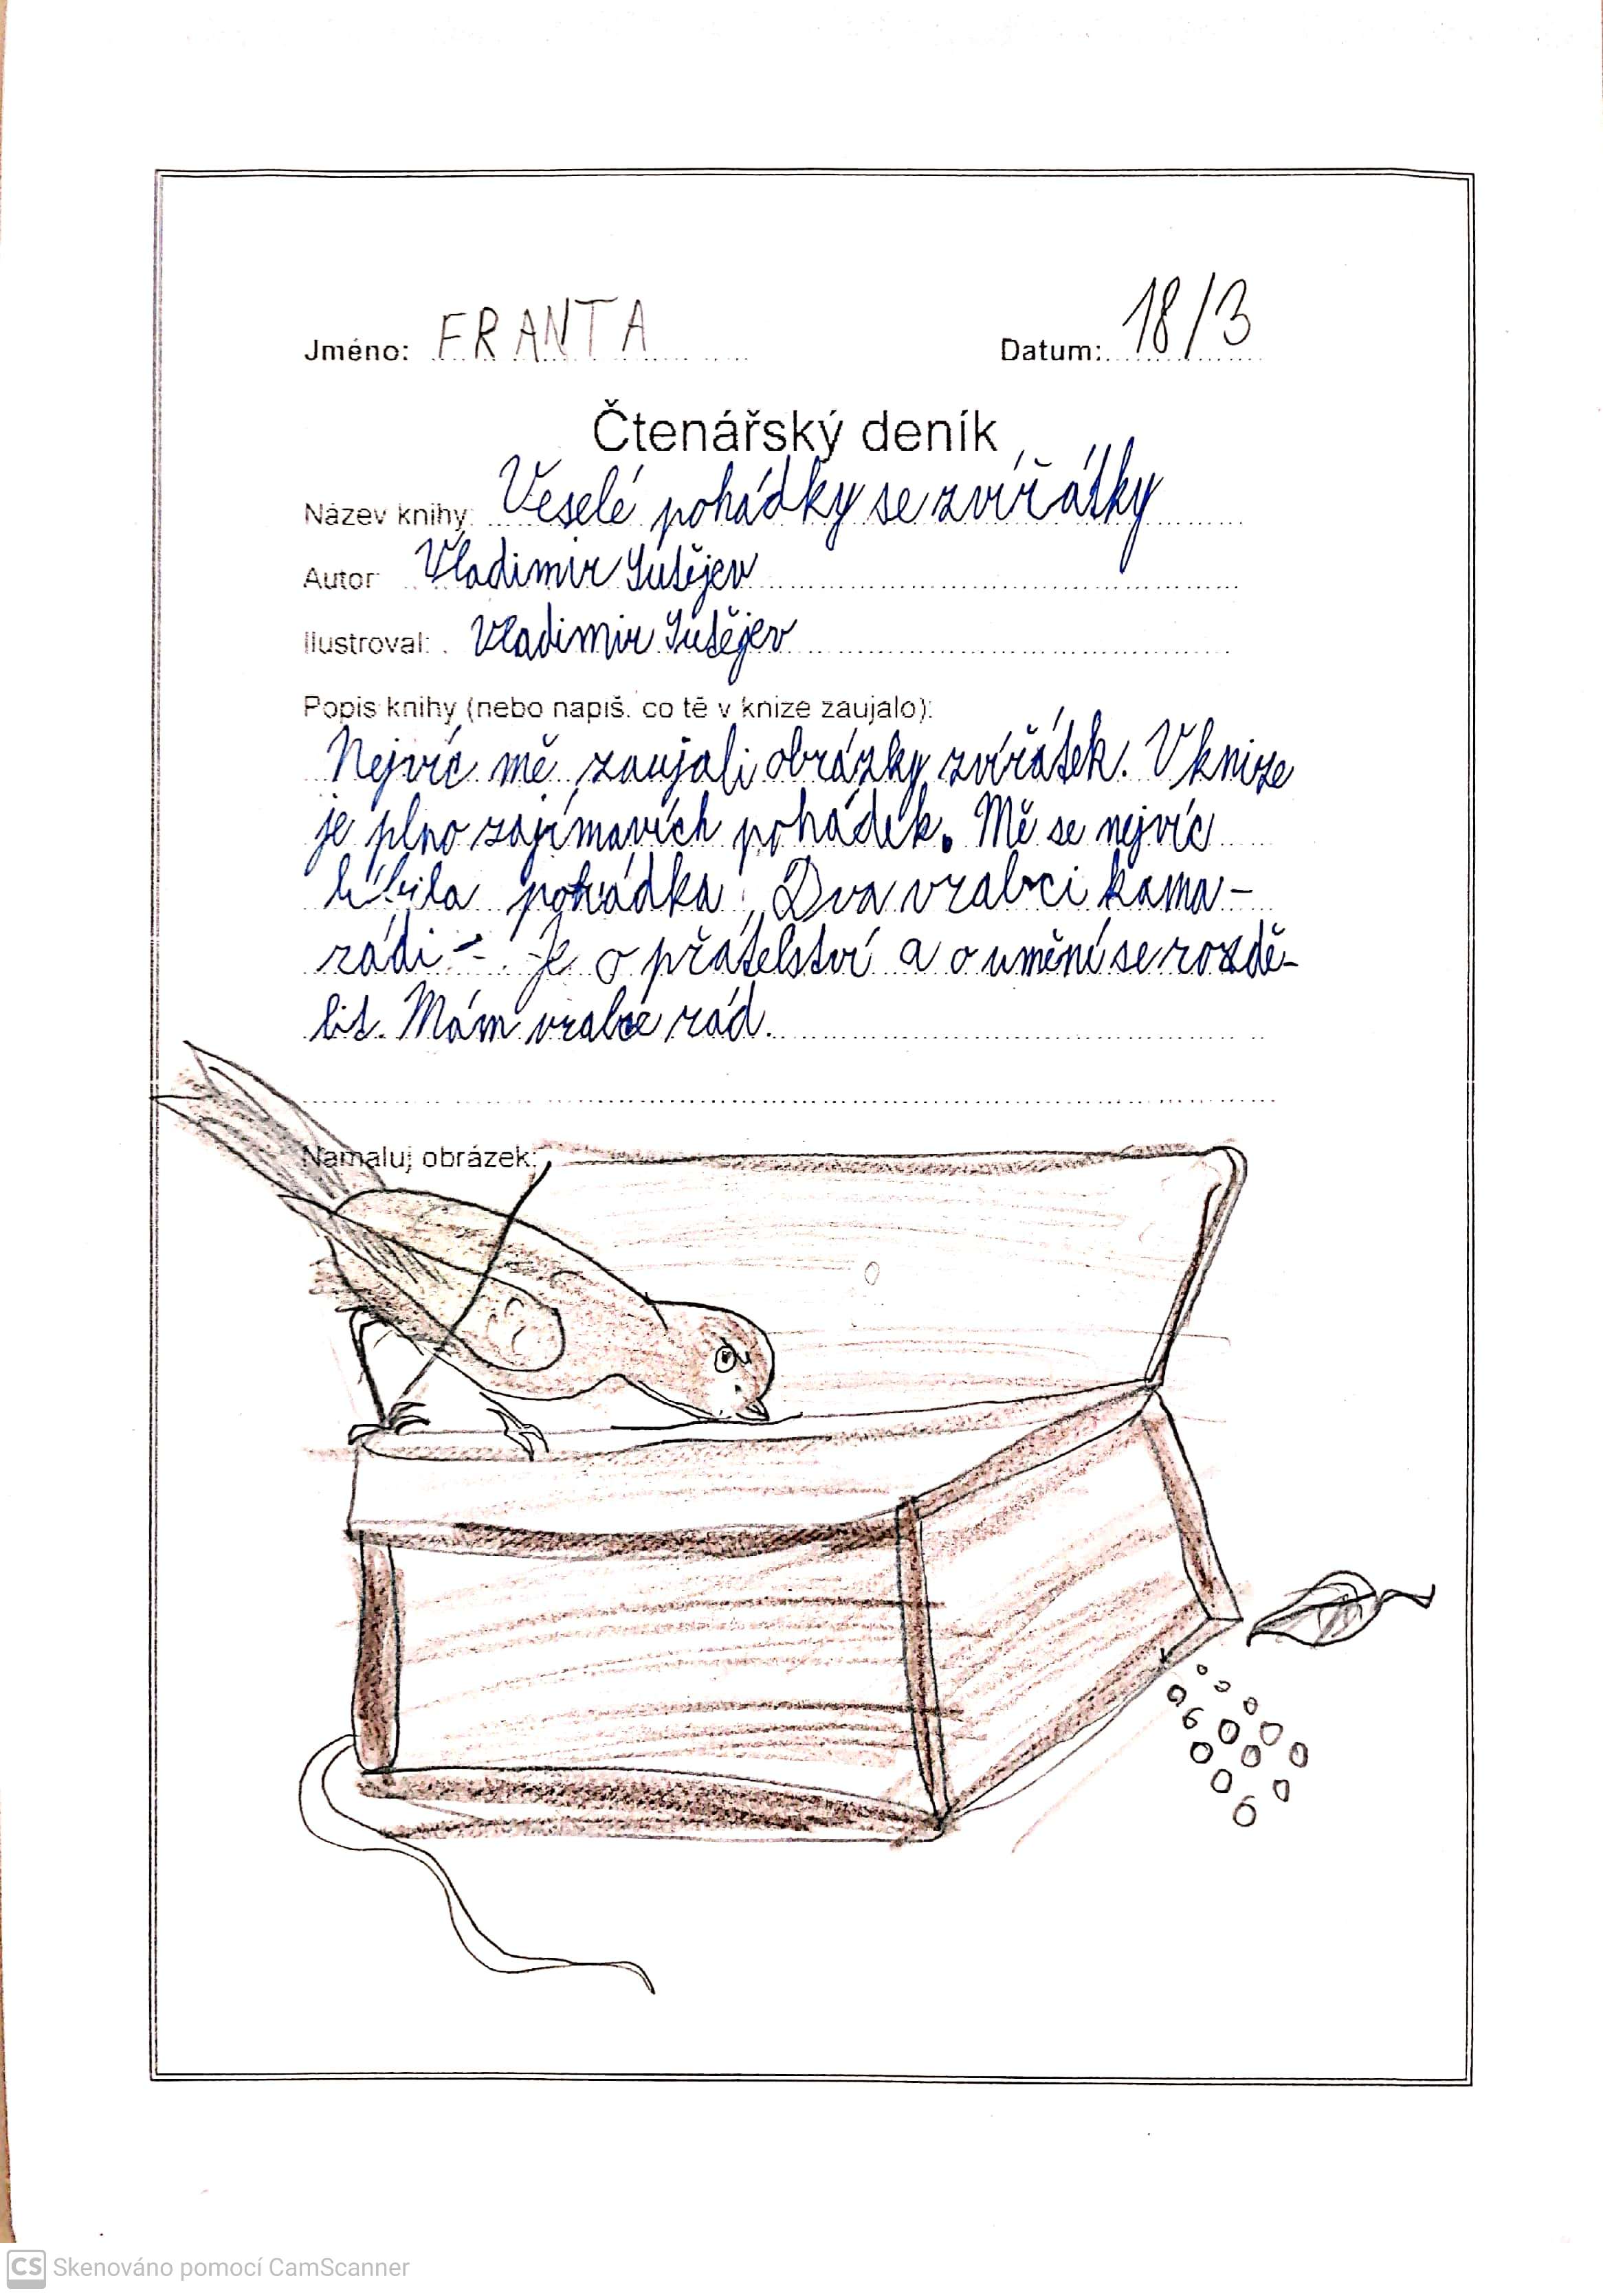 Jméno: FRANTA Datum: 18/3
Čtenářský deník
Název knihy: Veselé pohádky se zvířátky
Autor: Vladimir Sutějev
Ilustroval: Vladimir Sutějev
Popis knihy (nebo napiš, co tě v knize zaujalo):
Nejvíc mě zaujali obrázky zvířátek. V knize
je plno zajímavích pohádek. Mě se nejvíc
líbila pohádka: Dva vrabci kama-
rádi - Je o přátelství a o umění se rozdě-
lit. Mám vrabce rád.
Namaluj obrázek:
CS Skenováno pomocí CamScanner